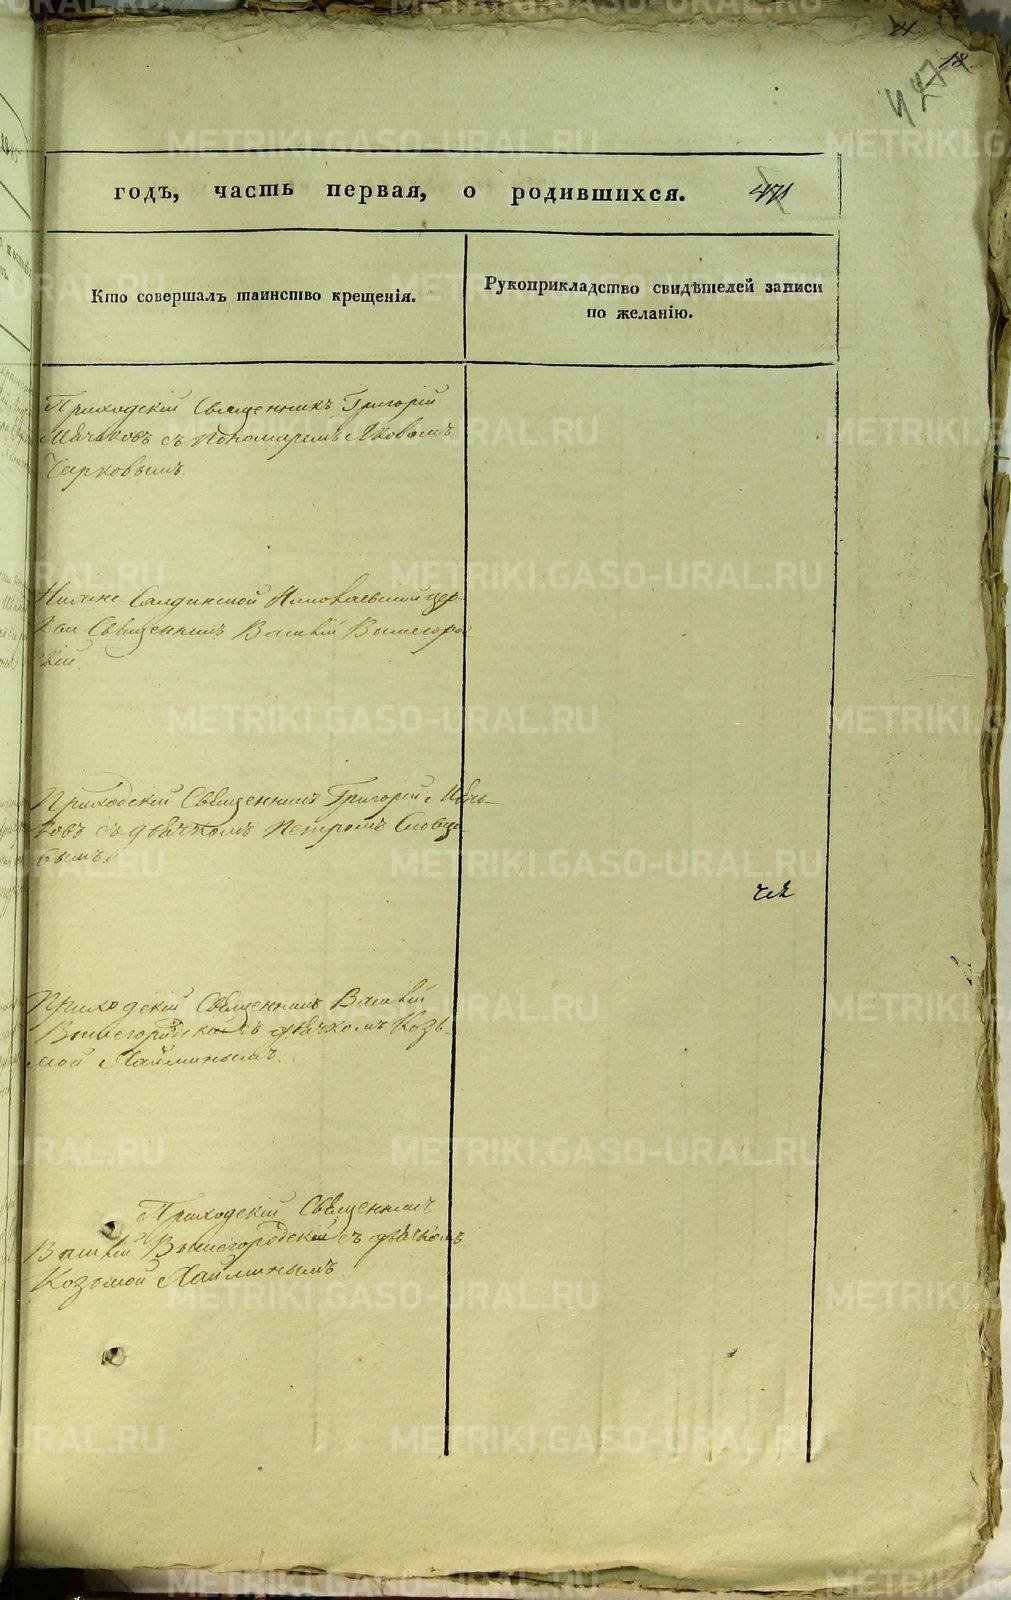 21
18.
427
годъ, часть первая, о родившихся. 471
Кто совершалъ таинство крещенія.
Рукоприкладство свидѣтелей записи
по желанію.
Приходскій Священникъ Григорій
Мѣчковъ съ Пономаремъ Яковомъ
Чирковымъ.
Нижне Салдинской Николаевской цер-
кви Священникъ Василій Вышегород
скій.
Приходскій Священникъ Григорій Мѣч-
ковъ съ дьячкомъ Петромъ Словцо
вымъ.
Приходскій Священникъ Василій
Вышегородскій съ дьячкомъ Козь-
мой Хайминымъ.
Приходскій Священникъ
Василій Вышегородскій съ дьячкомъ
Козьмой Хайминымъ
METRIKI.GASO-URAL.RU